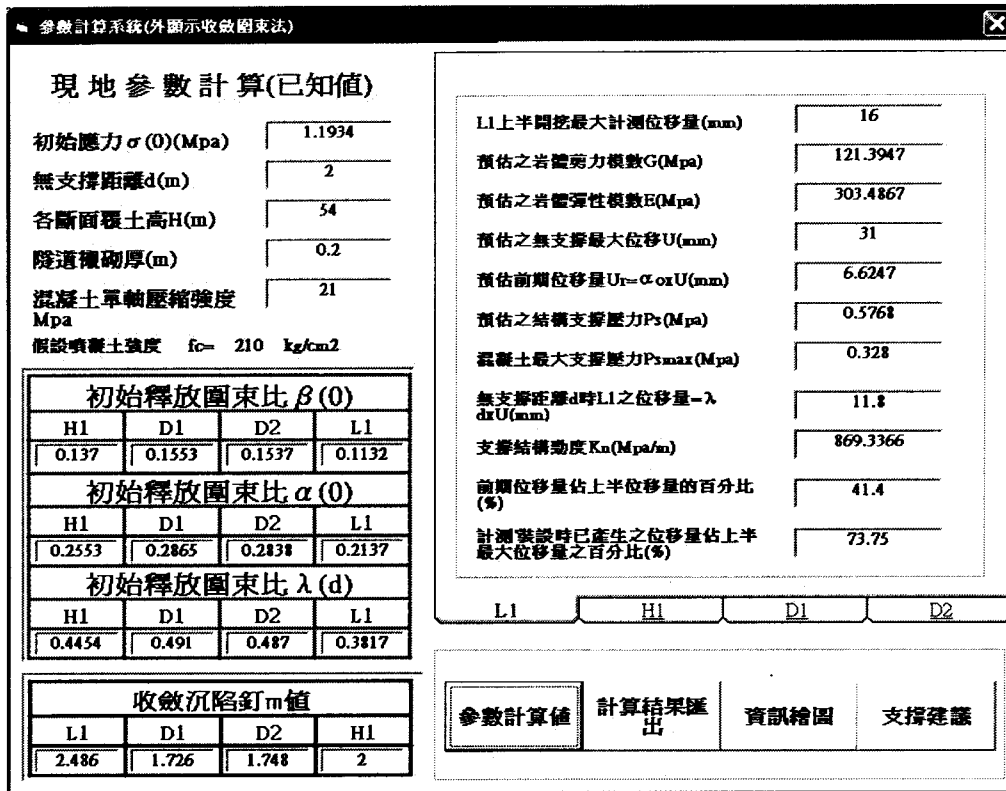 參數計算系統(外顯示收斂圍束法)
現地參數計算(已知值)
初始應力σ(0)(Mpa)
1.1934
無支撐距離d(m)
2
各斷面覆土高H(m)
54
隧道襯砌厚(m)
0.2
混凝土單軸壓縮強度
Mpa
21
假設噴凝土強度 fc= 210 kg/cm2
初始釋放圍束比β(0)
H1 D1 D2 L1
0.137 0.1553 0.1537 0.1132
初始釋放圍束比α(0)
H1 D1 D2 L1
0.2553 0.2865 0.2838 0.2137
初始釋放圍束比λ(d)
H1 D1 D2 L1
0.4454 0.491 0.487 0.3817
收斂沉陷釘m值
L1 D1 D2 H1
2.486 1.726 1.748 2
L1上半開挖最大計測位移量(mm)
16
預估之岩體剪力模數G(Mpa)
121.3947
預估之岩體彈性模數E(Mpa)
303.4867
預估之無支撐最大位移U(mm)
31
預估前期位移量Ur=αoxU(mm)
6.6247
預估之結構支撐壓力Ps(Mpa)
0.5768
混凝土最大支撐壓力Psmax(Mpa)
0.328
無支撐距離d時L1之位移量=λ
dxU(mm)
11.8
支撐結構勁度Kn(Mpa/m)
869.3366
前期位移量佔上半位移量的百分比
(%)
41.4
計測裝設時已產生之位移量佔上半
最大位移量之百分比(%)
73.75
L1 H1 D1 D2
參數計算值
計算結果匯
出
資訊繪圖
支撐建議